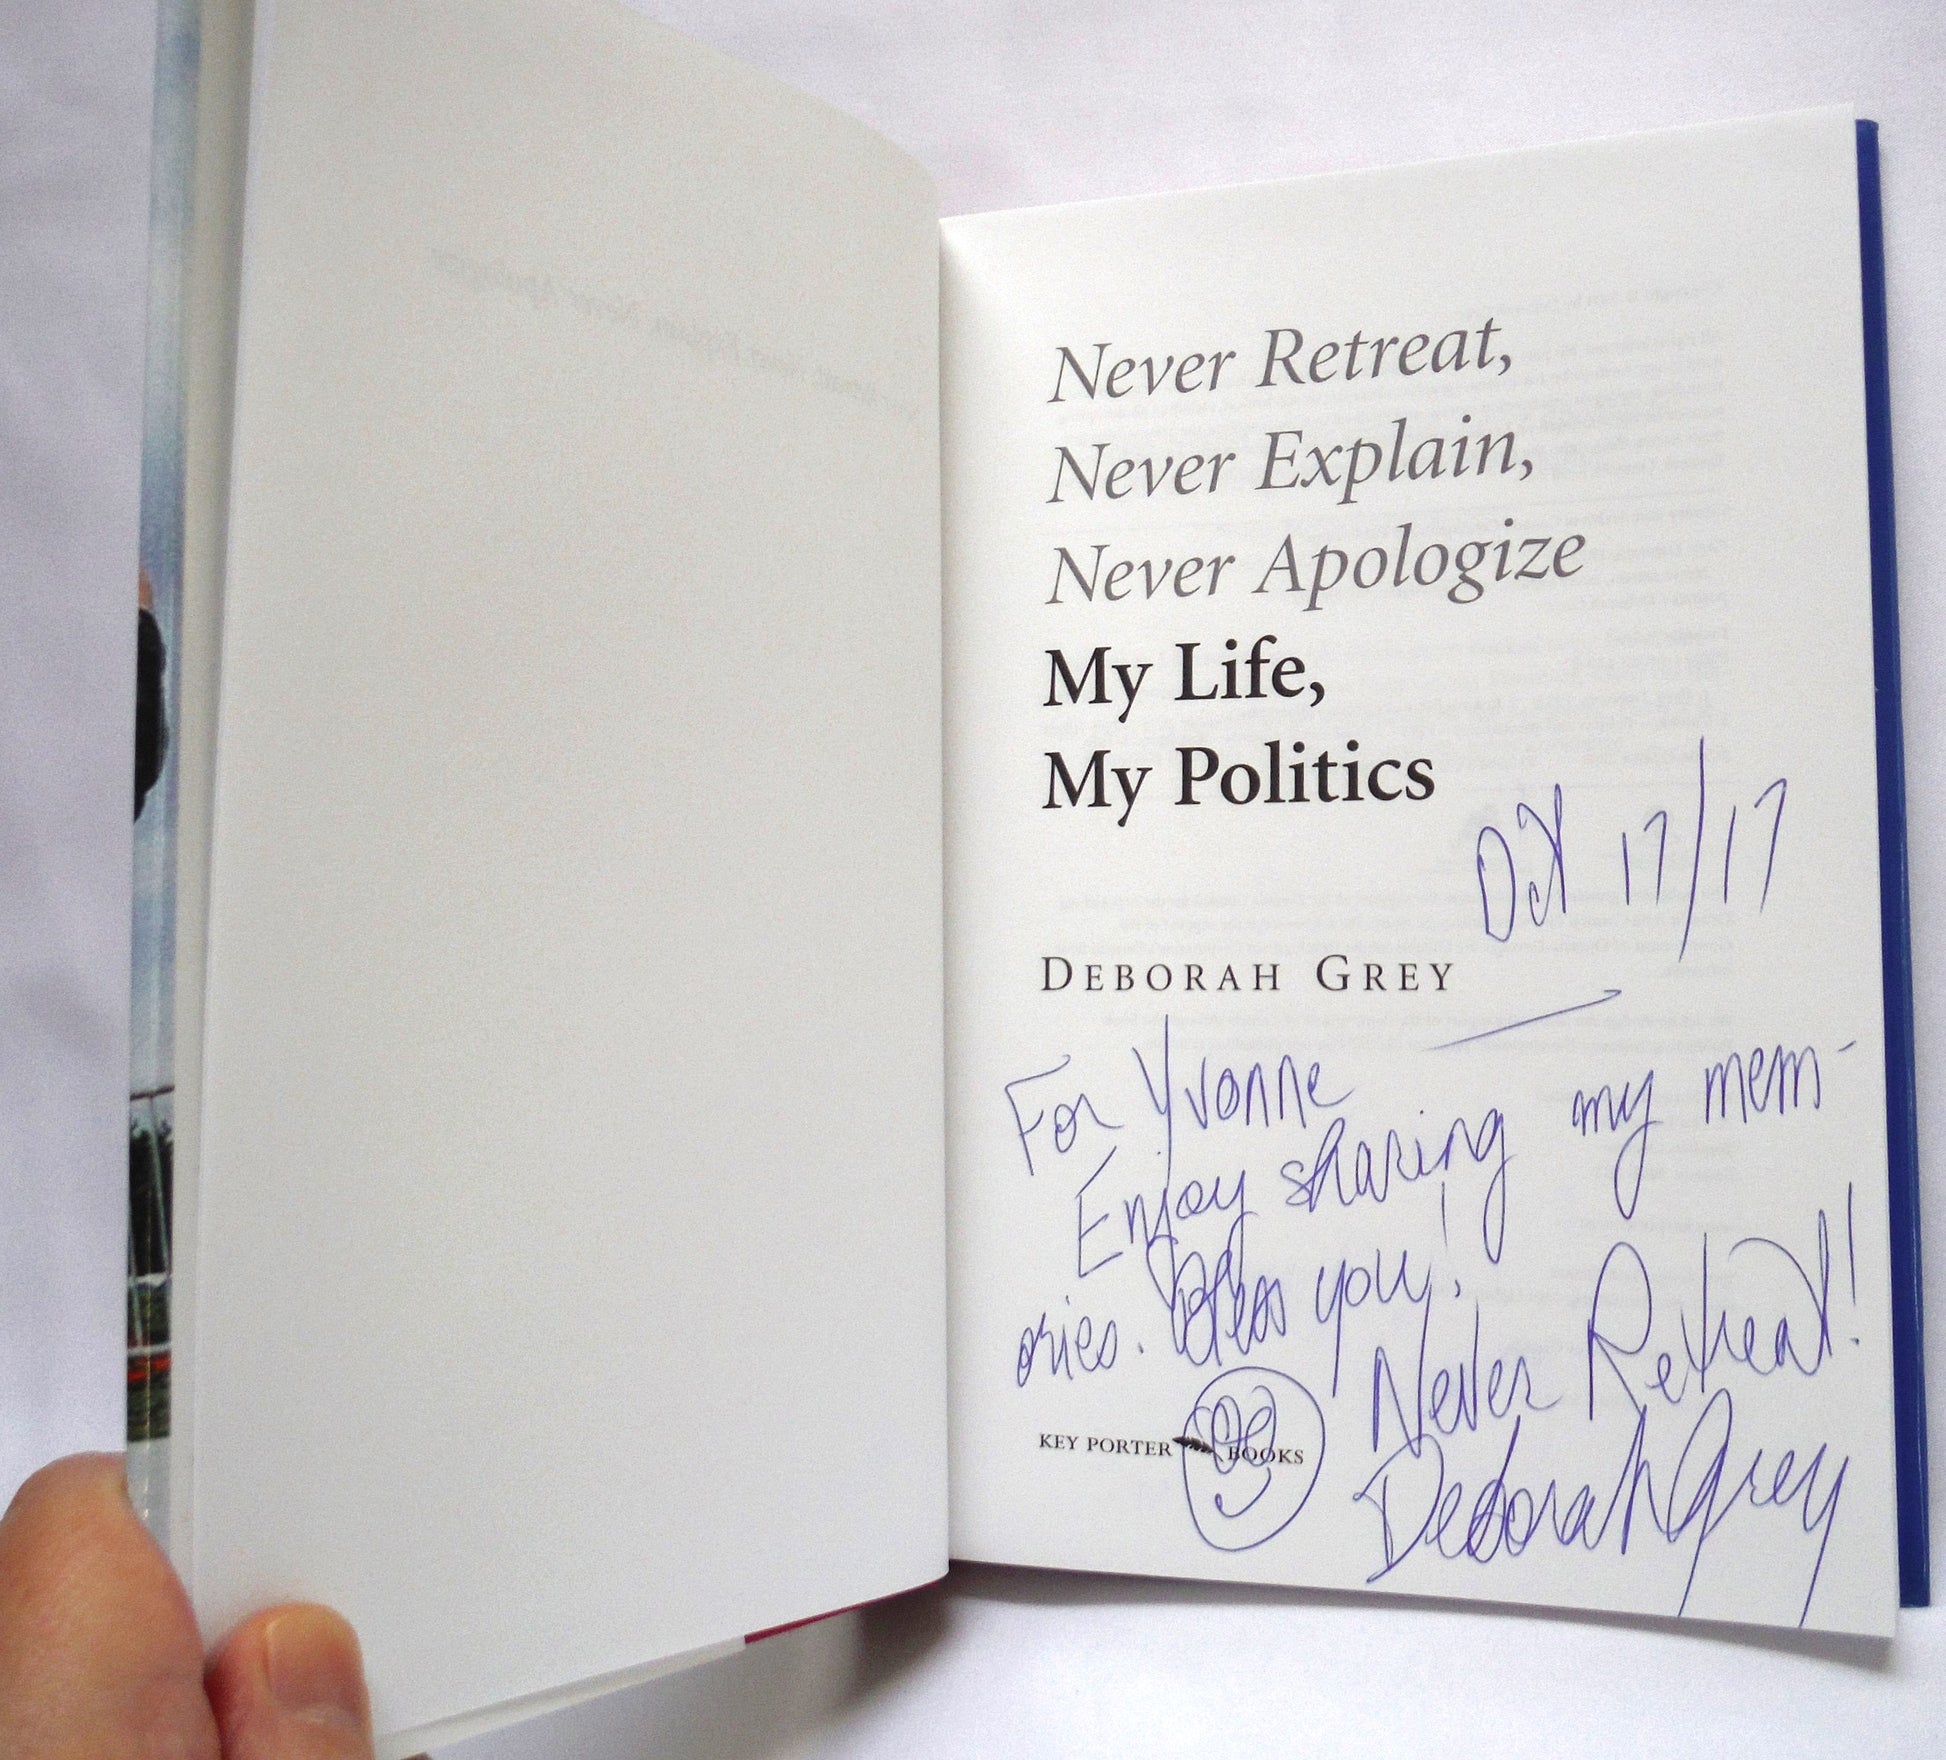 Never Retreat,
Never Explain,
Never Apologize
My Life,
My Politics
Oct 17/17
DEBORAH GREY
For Yvonne
Enjoy sharing my mem-
ories. Bless you!
Never Retreat!
KEY PORTER BOOKS
Deborah Grey